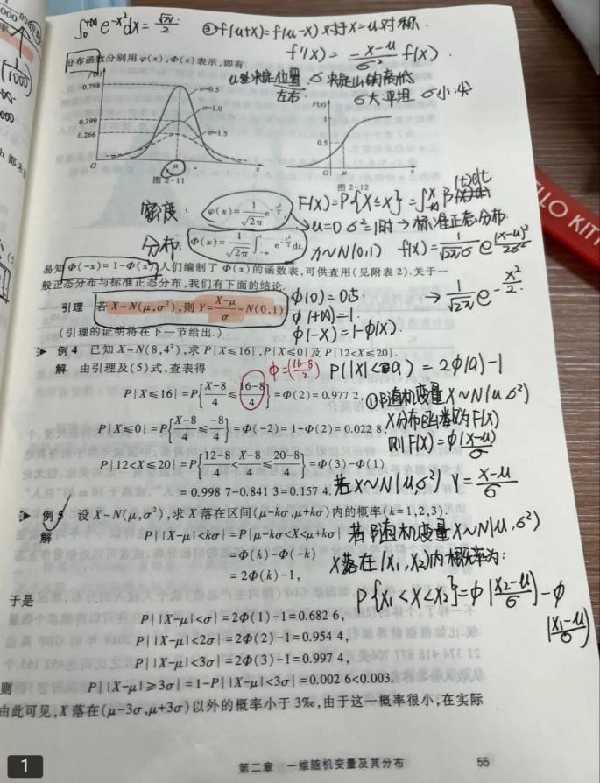 ∫₀^{+∞} e^{-x²}dx = √π/2
②f(u+x)=f(u-x) 对于x=u对称.
f'(x) = -(x-u)/σ² f(x).
分布函数分别用 φ(x),Φ(x)表示,即有
u 决定位置 σ 决定山的高低
左右 σ大平坦 σ小尖
0.798
0.399
0.266
σ=0.5
σ=1.0
σ=1.5
F(x)
1
0.5
O μ x
图 2-11
图 2-12
密度: φ(x)=1/√2π e^{-x²/2}
F(x)=P{X≤x}=
→u=0 σ²=1时→标准正态分布
分布: Φ(x)=1/√2π ∫_{-∞}^{x} e^{-t²/2}dt,
X~N(0,1) f(x)=1/(√2π σ) e^{-(x-u)²/2σ²}
易知 Φ(-x)=1-Φ(x),人们编制了 Φ(x)的函数表,可供查用(见附表2).关于一
般正态分布与标准正态分布,我们有下面的结论.
→ 1/√2π e^{-x²/2}
引理 若 X~N(μ,σ²),则 Y=(X-μ)/σ~N(0,1).
φ(0)=0.5
φ(+∞)=1.
φ(-x)=1-φ(x).
(引理的证明将在下一节给出.)
例4 已知 X~N(8,4²),求 P{X≤16},P{X≤0}及 P{12<X≤20}.
解 由引理及(5)式,查表得
φ=((16-8)/2)
P(|X|<a) = 2φ(a)-1
P{X≤16}=P{(X-8)/4≤(16-8)/4}=Φ(2)=0.977 2,
①若随机变量X~N(u,σ²)
X分布函数为F(X)
P{X≤0}=P{(X-8)/4≤-8/4}=Φ(-2)=1-Φ(2)=0.022 8,
则F(X)=φ((x-u)/σ)
P{12<X≤20}=P{(12-8)/4<(X-8)/4≤(20-8)/4}=Φ(3)-Φ(1)
=0.998 7-0.841 3=0.157 4.
若X~N(u,σ²) Y=(X-u)/σ
例5 设 X~N(μ,σ²),求 X 落在区间(μ-kσ,μ+kσ)内的概率(k=1,2,3).
解 P{|X-μ|<kσ}=P{μ-kσ<X<μ+kσ}
若随机变量X~N(u,σ²)
=Φ(k)-Φ(-k)
X落在(x₁,x₂)内概率为:
=2Φ(k)-1,
P{x₁<X<x₂}=φ((x₂-u)/σ)-φ((x₁-u)/σ)
于是
P{|X-μ|<σ}=2Φ(1)-1=0.682 6,
P{|X-μ|<2σ}=2Φ(2)-1=0.954 4,
P{|X-μ|<3σ}=2Φ(3)-1=0.997 4,
则 P{|X-μ|≥3σ}=1-P{|X-μ|<3σ}=0.002 6<0.003.
由此可见,X 落在(μ-3σ,μ+3σ)以外的概率小于3‰,由于这一概率很小,在实际
第二章 一维随机变量及其分布 55
LLO KITT
1